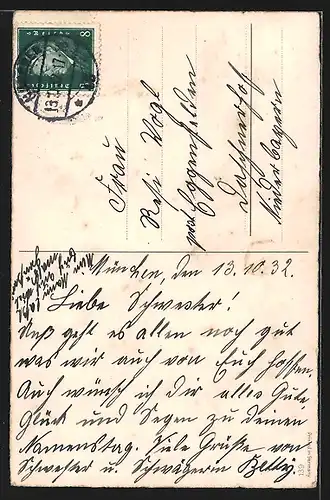 Frau
Resi Vogl
post Eggenfelden
Niederbayern
München, den 13.10.32.
Liebe Schwester!
geht es allen noch gut
was wir auch von Euch hoffen.
Auch wünsch ich dir alles Gute,
Glück und Segen zu deinem
Namenstag. Viele Grüße von
Schwester u. Schwägerin Betty
8
139